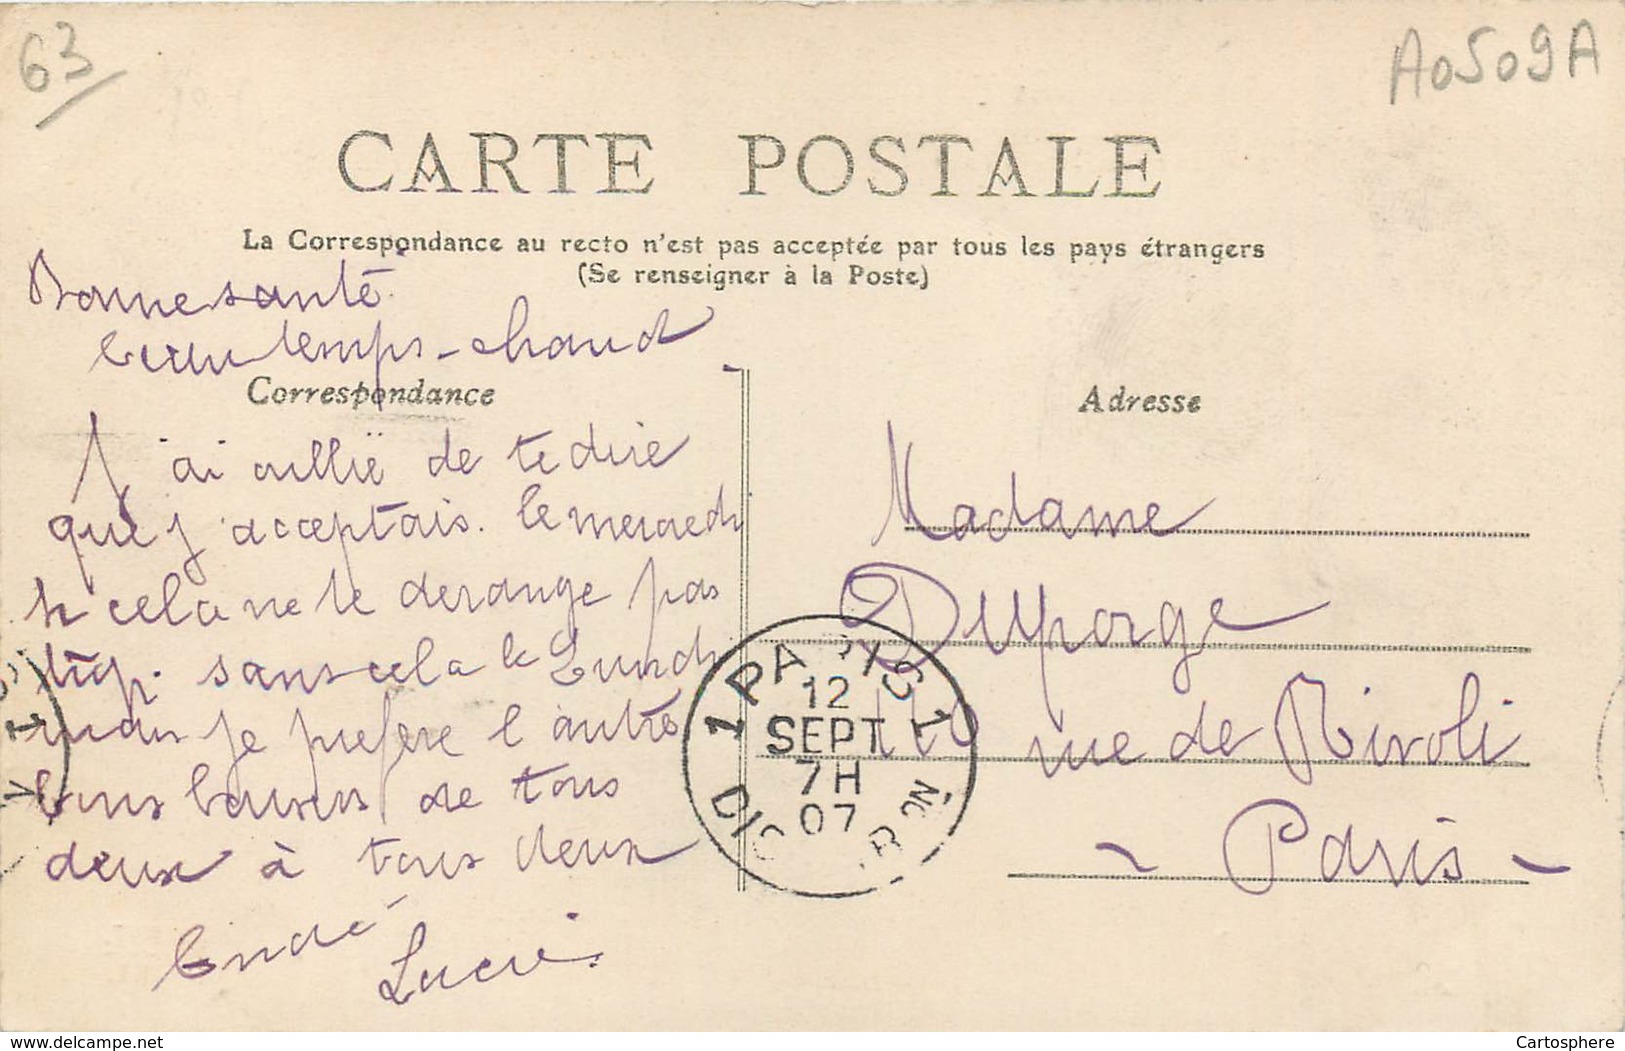 63
A0509A
CARTE POSTALE
La Correspondance au recto n'est pas acceptée par tous les pays étrangers
(Se renseigner à la Poste)
Bonne santé
beau temps - chaud
Correspondance
J'ai oullié de te dire
que j'acceptais le mercredi
si cela ne te derange pas
trop. sans cela le Lundi
mais je préfère l'autre
bons baisers de tous
deux à tous deux
Lucie
Adresse
Madame
Duporge
110 rue de Rivoli
- Paris -
12
SEPT
7H
07
www.delcampe.net
Cartosphere